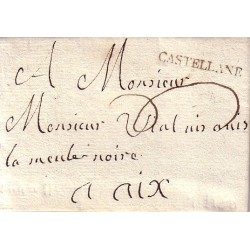 CASTELLANE
A Monsieur
Monsieur
la meule noire
a aix